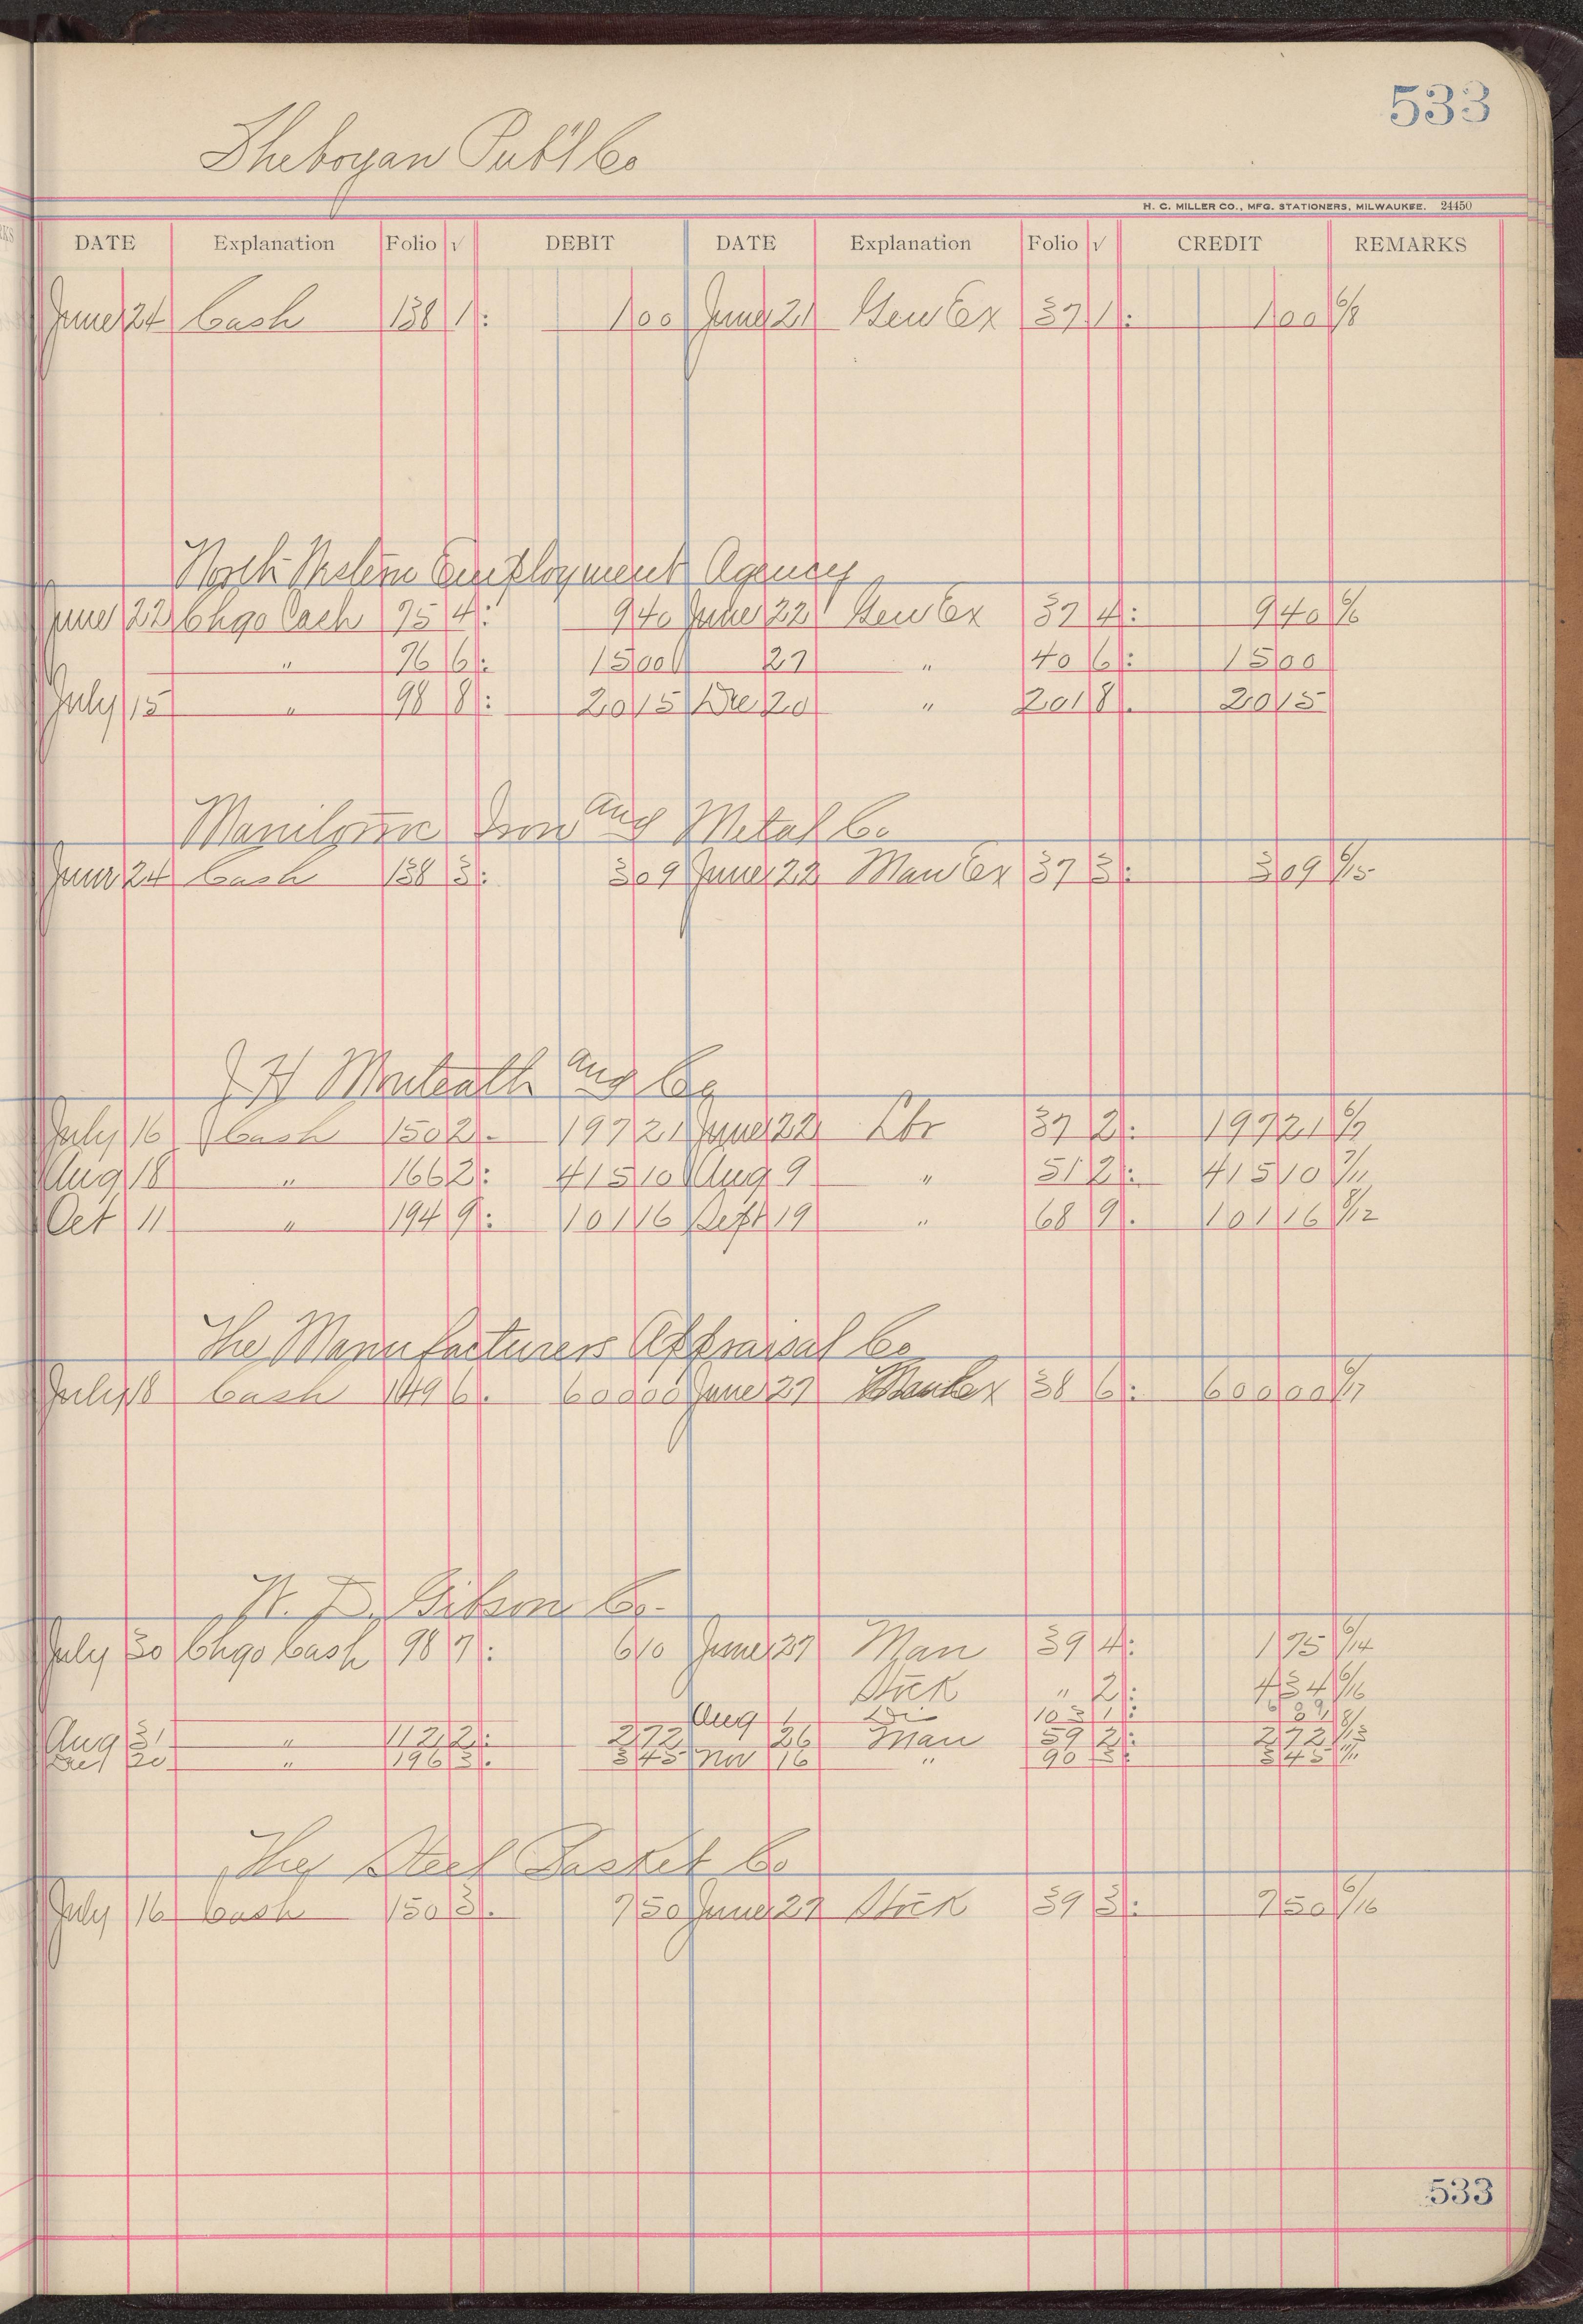 533
Sheboygan Publ Co
H. C. MILLER CO., MFG. STATIONERS, MILWAUKEE. 24450
DATE Explanation Folio √ DEBIT DATE Explanation Folio √ CREDIT REMARKS
June 24 Cash 138 1 1 00 June 21 Gen Ex 37 1 1 00 6/8
North Western Employment Agency
June 22 Chgo Cash 75 4 9 40 June 22 Gen Ex 37 4 9 40 6/6
" 76 6 15 00 27 " 40 6 15 00
July 15 " 98 8 20 15 Dec 20 " 201 8 20 15
Iron and Metal Co
June 24 Cash 138 3 3 09 June 22 Man Ex 37 3 3 09 6/15
J H Monteath and Co
July 16 Cash 150 2 197 21 June 22 Lbr 37 2 197 21 6/7
Aug 18 " 166 2 415 10 Aug 9 " 51 2 415 10 7/11
Oct 11 " 194 9 101 16 Sept 19 " 68 9 101 16 8/12
The Manufacturers Appraisal Co
July 8 Cash 149 6 600 00 June 27 38 6 600 00 6/7
W. D. Gibson Co.
July 30 Chgo Cash 98 7 6 10 June 27 Man 39 4 1 75 6/14
Stck " 2 4 34 6/16
Aug 1 103 1
Aug 31 " 112 2 2 72 26 Man 59 2 2 72 8/13
20 " 196 3 3 45 Nov 16 " 90 3 3 45
The Steel Basket Co
July 16 Cash 150 3 7 50 June 27 Stck 39 3 7 50 6/16
533